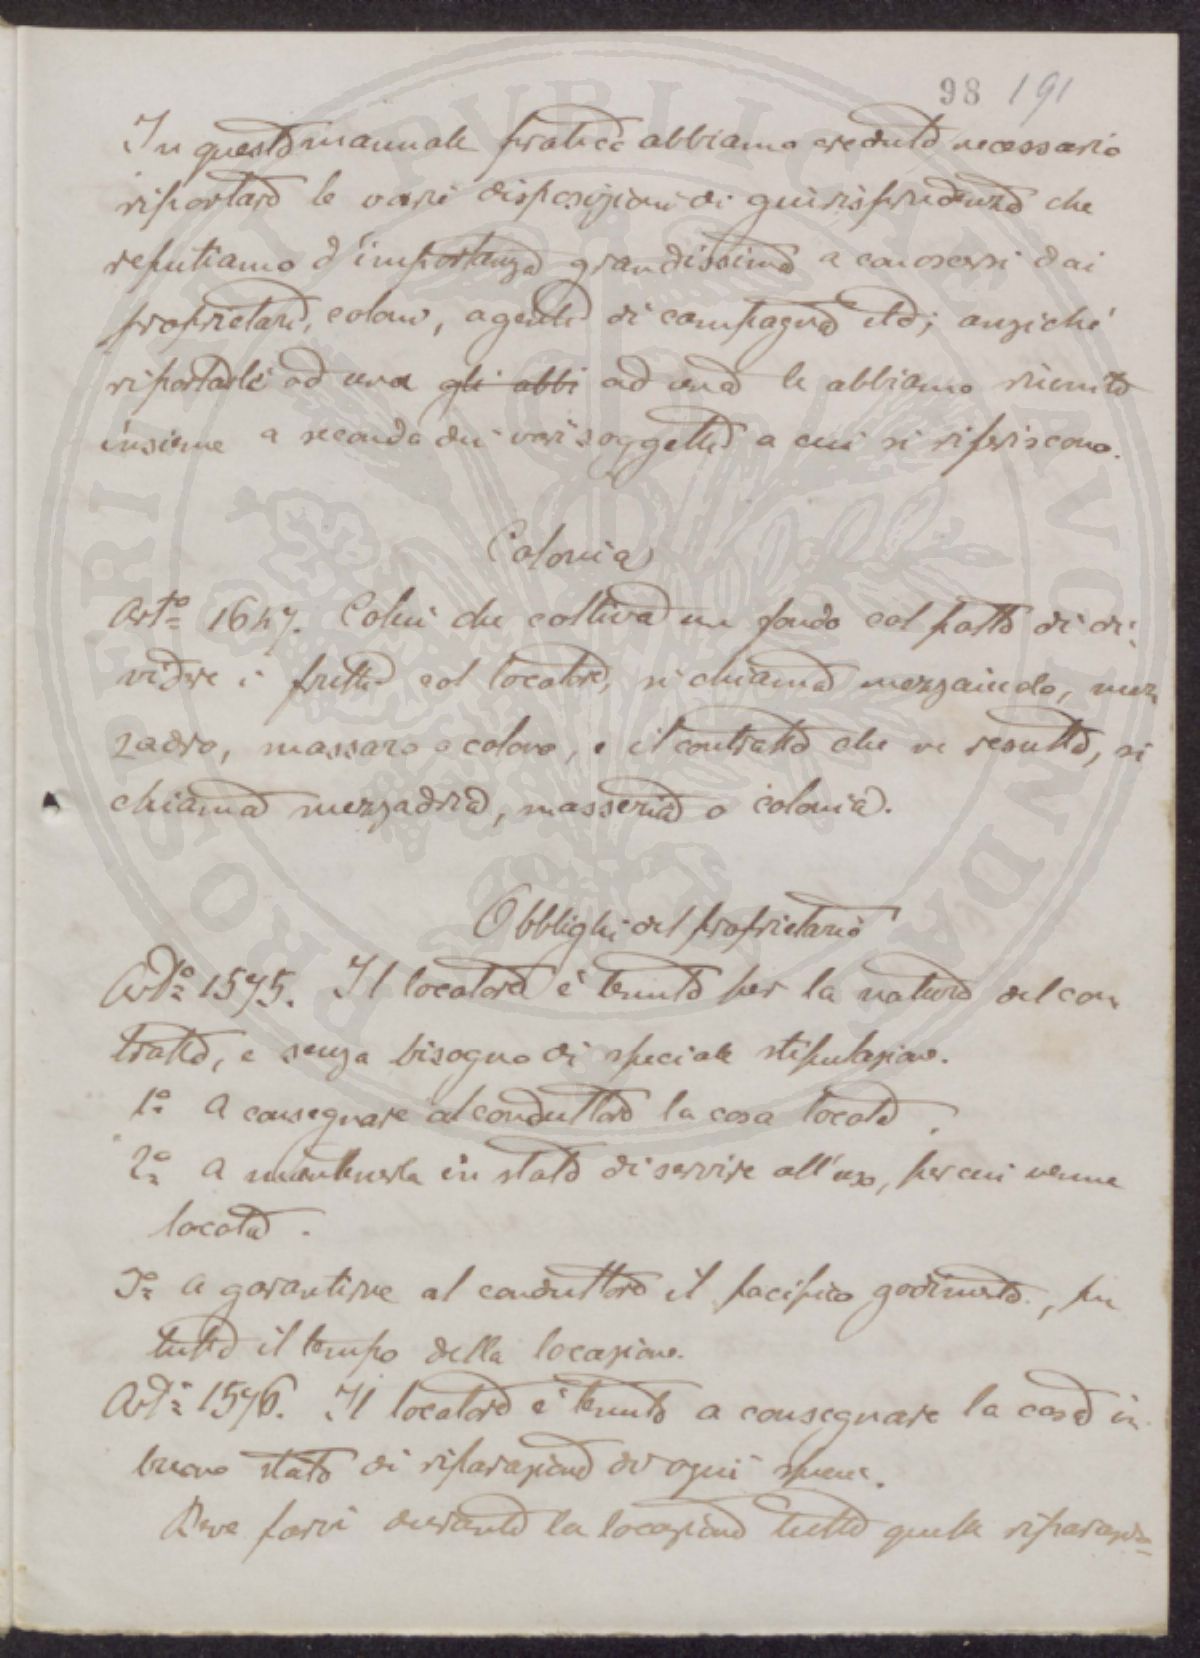 98 191
In questo manuale pratico abbiamo creduto necessario
riportare le varie disposizioni di guirisprudenza che
reputiamo d'importanza grandissima a conoscersi dai
proprietari, coloni, agenti di campagna etc; anziché
riportarle ad una gli abbi ad una le abbiamo riunite
insieme a seconda dei vari soggetti a cui si riferiscono.
Colonia
Arto 1647. Colui che coltiva un fondo col patto di di-
videre i frutti col locatore, si chiama mezzaiuolo, mez
zadro, massaro o colono, e il contratto che ne resulta, si
chiama mezzadria, masseria o colonia.
Obblighi del proprietario
Arto 1575. Il locatore è tenuto per la natura del con
tratto, e senza bisogno di speciale stipulazione.
1o A consegnare al conduttore la cosa locata.
2o A mantenerla in stato di servire all'uso, per cui venne
locata.
3o A garantirne al conduttore il pacifico godimento, per
tutto il tempo della locazione.
Arto 1576. Il locatore è tenuto a consegnare la cosa in
buono stato di riparazione di ogni specie.
Deve farvi durante la locazione tutte quelle riparazio=
PROSPERITATI PVBLICAE AVGENDAE